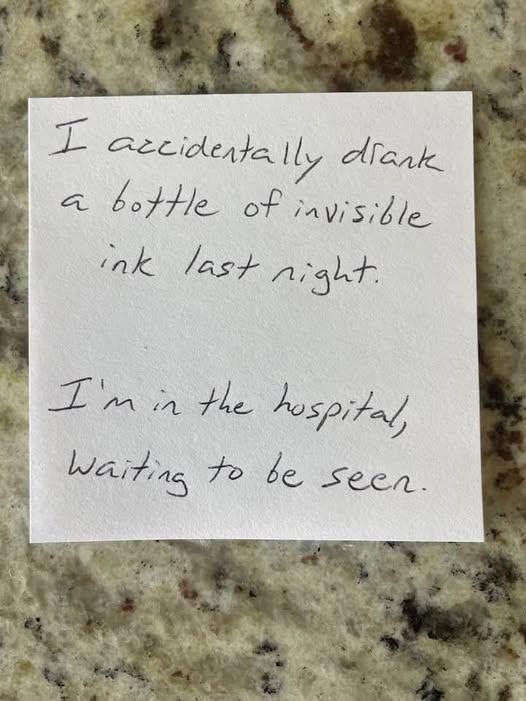 I accidentally drank
a bottle of invisible
ink last night.
I'm in the hospital,
waiting to be seen.